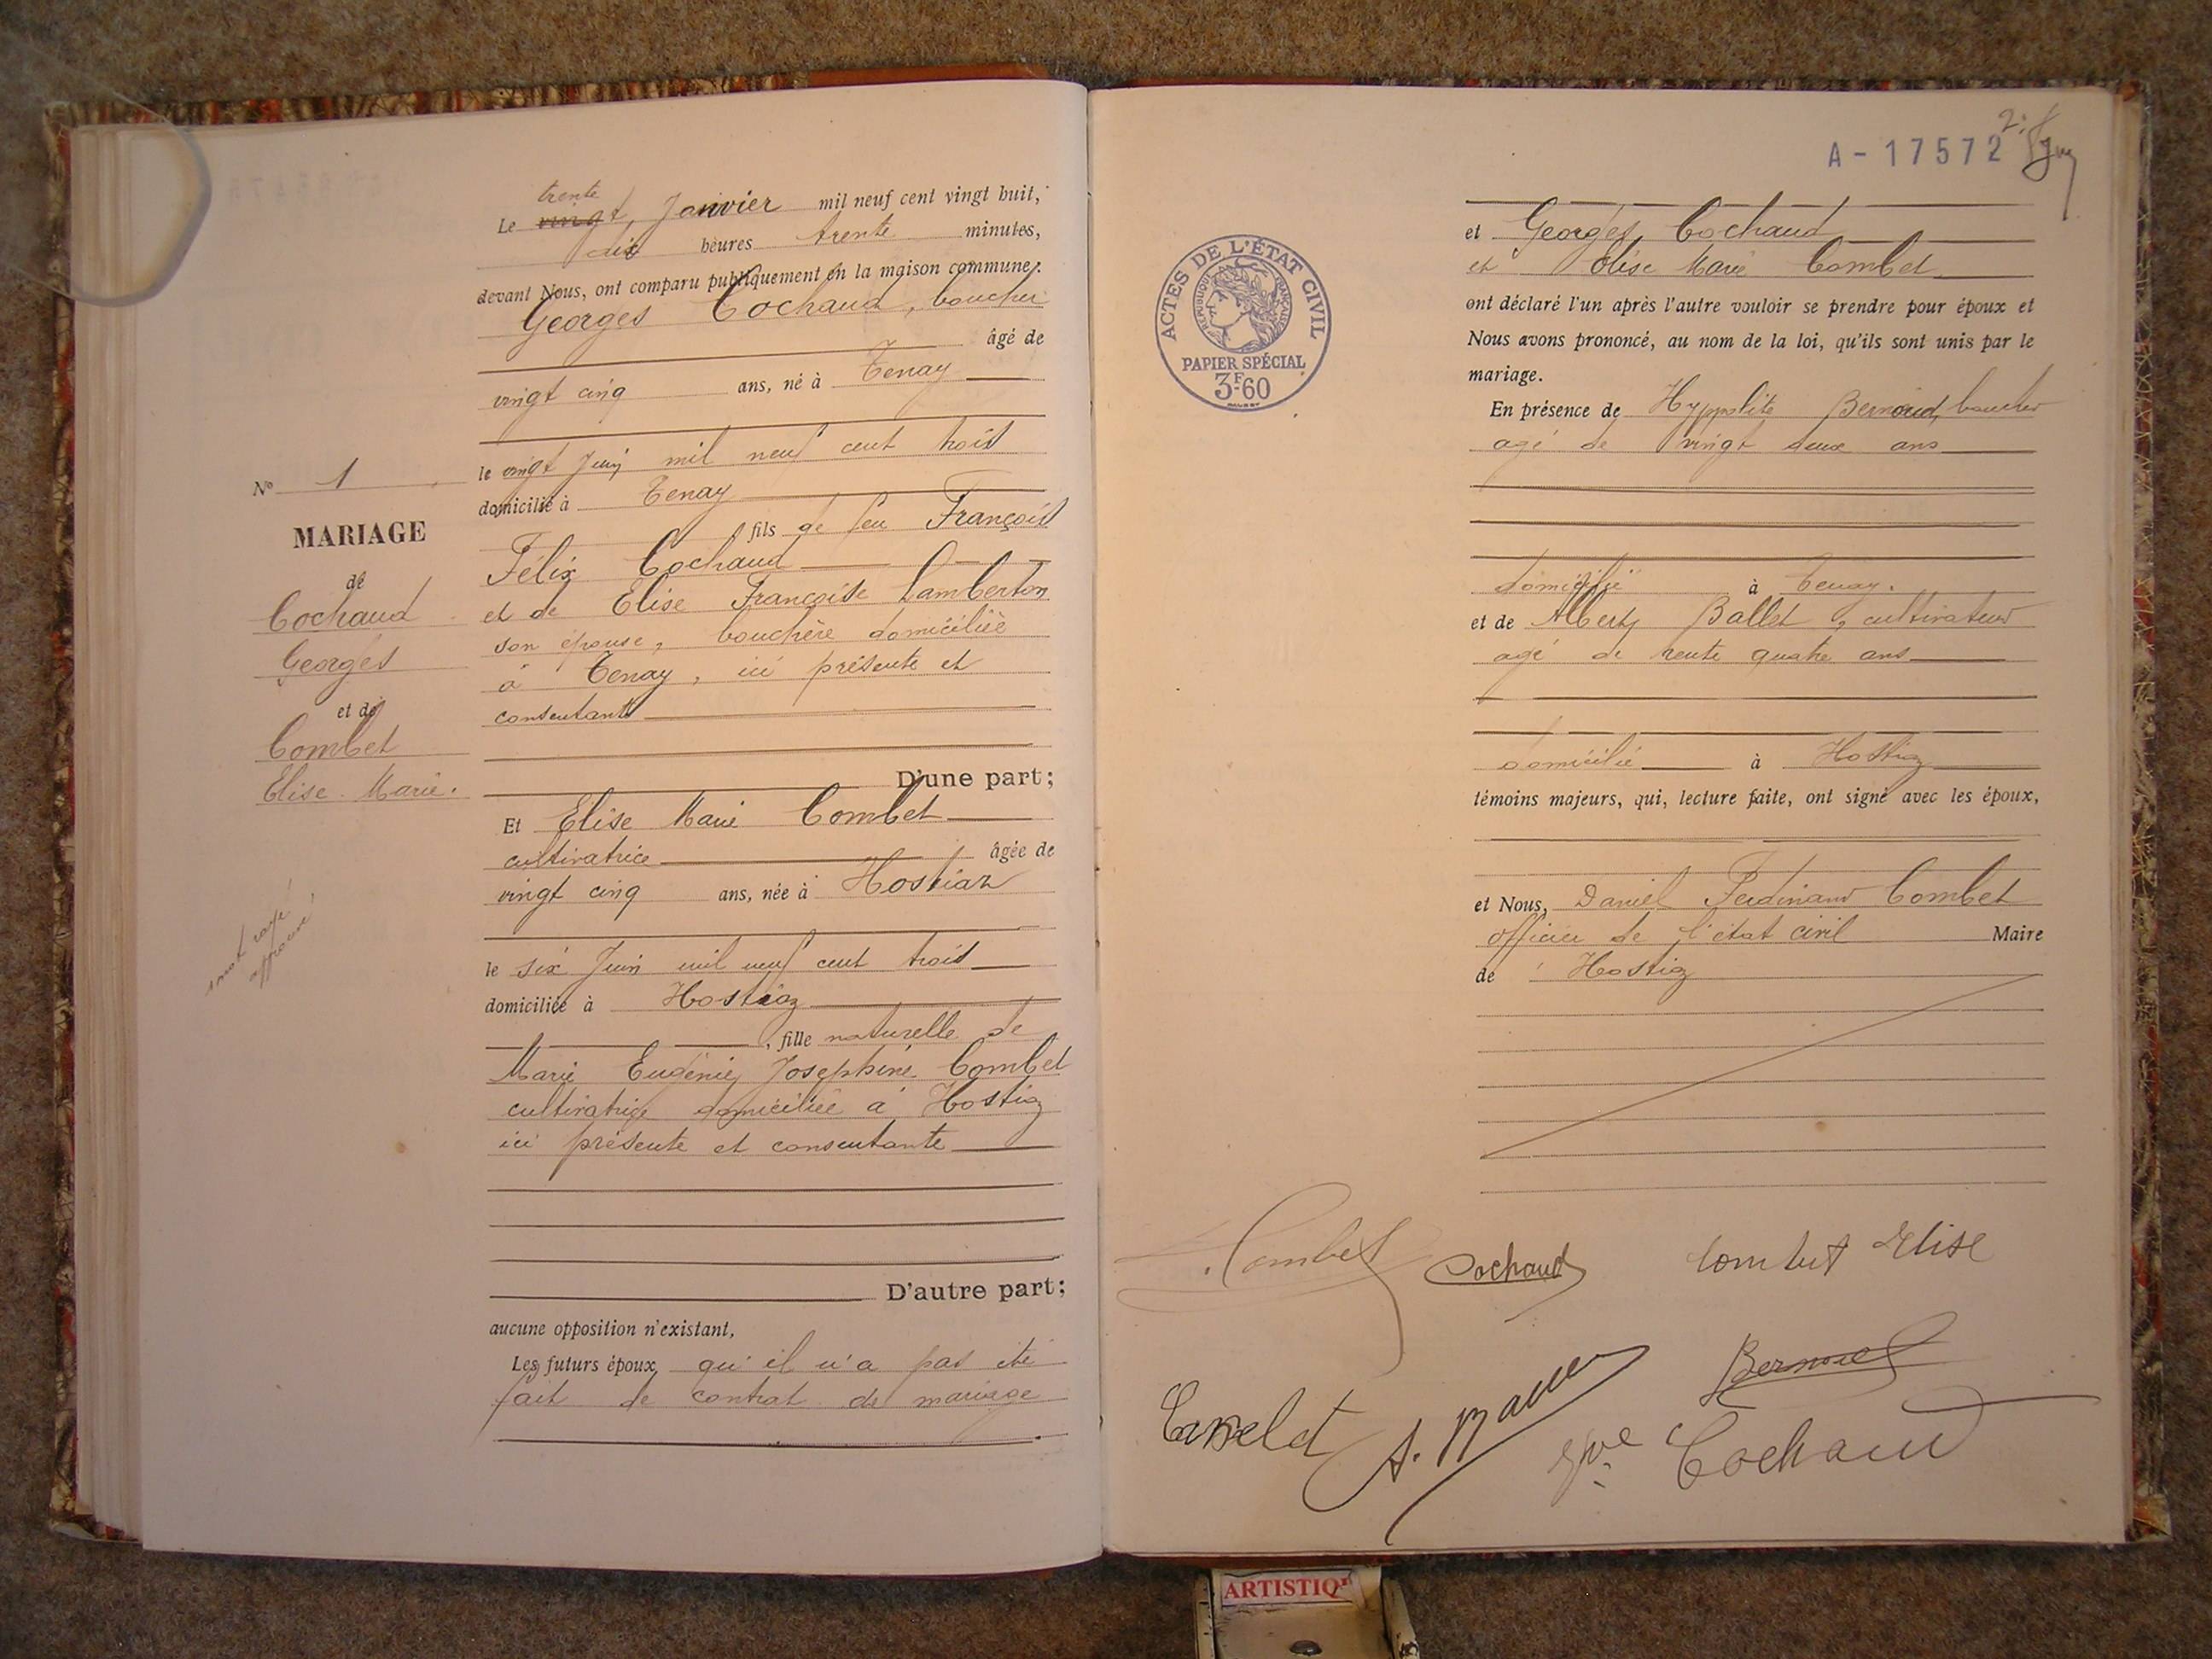 N° 1
MARIAGE
de
Cochaud
Georges
et de
Combet
Elise Marie.
1 mot rayé
approuvé
trente
Le vingt, Janvier mil neuf cent vingt huit,
dix heures trente minutes,
devant Nous, ont comparu publiquement en la maison commune:
Georges Cochaud, boucher
âgé de
vingt cinq ans, né à Tenay
le vingt Juin mil neuf cent trois
domicilié à Tenay
fils de feu François
Félix Cochaud
et de Elise Françoise Lamberton
son épouse, bouchère domiciliée
à Tenay, ici présente et
consentante
D'une part;
Et Elise Marie Combet
cultivatrice âgée de
vingt cinq ans, née à Hostiaz
le six Juin mil neuf cent trois
domiciliée à Hostiaz
, fille naturelle de
Marie Eugénie Joséphine Combet
cultivatrice domiciliée à Hostiaz
ici présente et consentante
D'autre part;
aucune opposition n'existant,
Les futurs époux qu'il n'a pas été
fait de contrat de mariage
A-17572
ACTES DE L'ÉTAT CIVIL
RÉPUBLIQUE FRANÇAISE
PAPIER SPÉCIAL
3F.60
et Georges Cochaud
et Elise Marie Combet
ont déclaré l'un après l'autre vouloir se prendre pour époux et
Nous avons prononcé, au nom de la loi, qu'ils sont unis par le
mariage.
En présence de Hyppolite Bernoud, boucher
agé de vingt deux ans
domicilié à Tenay.
et de Albert Ballet, cultivateur
agé de trente quatre ans
domicilié à Hostiaz
témoins majeurs, qui, lecture faite, ont signé avec les époux,
et Nous, Daniel Ferdinand Combet
officier de l'état civil Maire
de Hostiaz
Combet Cochaud Combet Elise
Bernoud
Vve Cochaud
ARTISTIQ